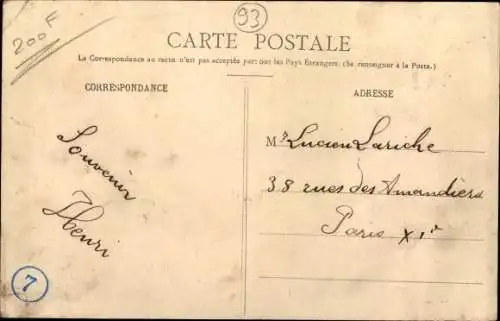 200 F
93
CARTE POSTALE
La Correspondance au recto n'est pas acceptée par tous les Pays Étrangers. (Se renseigner à la Poste.)
CORRESPONDANCE
Souvenir
Henri
7
ADRESSE
Mr Lucien Lariche
38 rues des Amandiers
Paris XIe